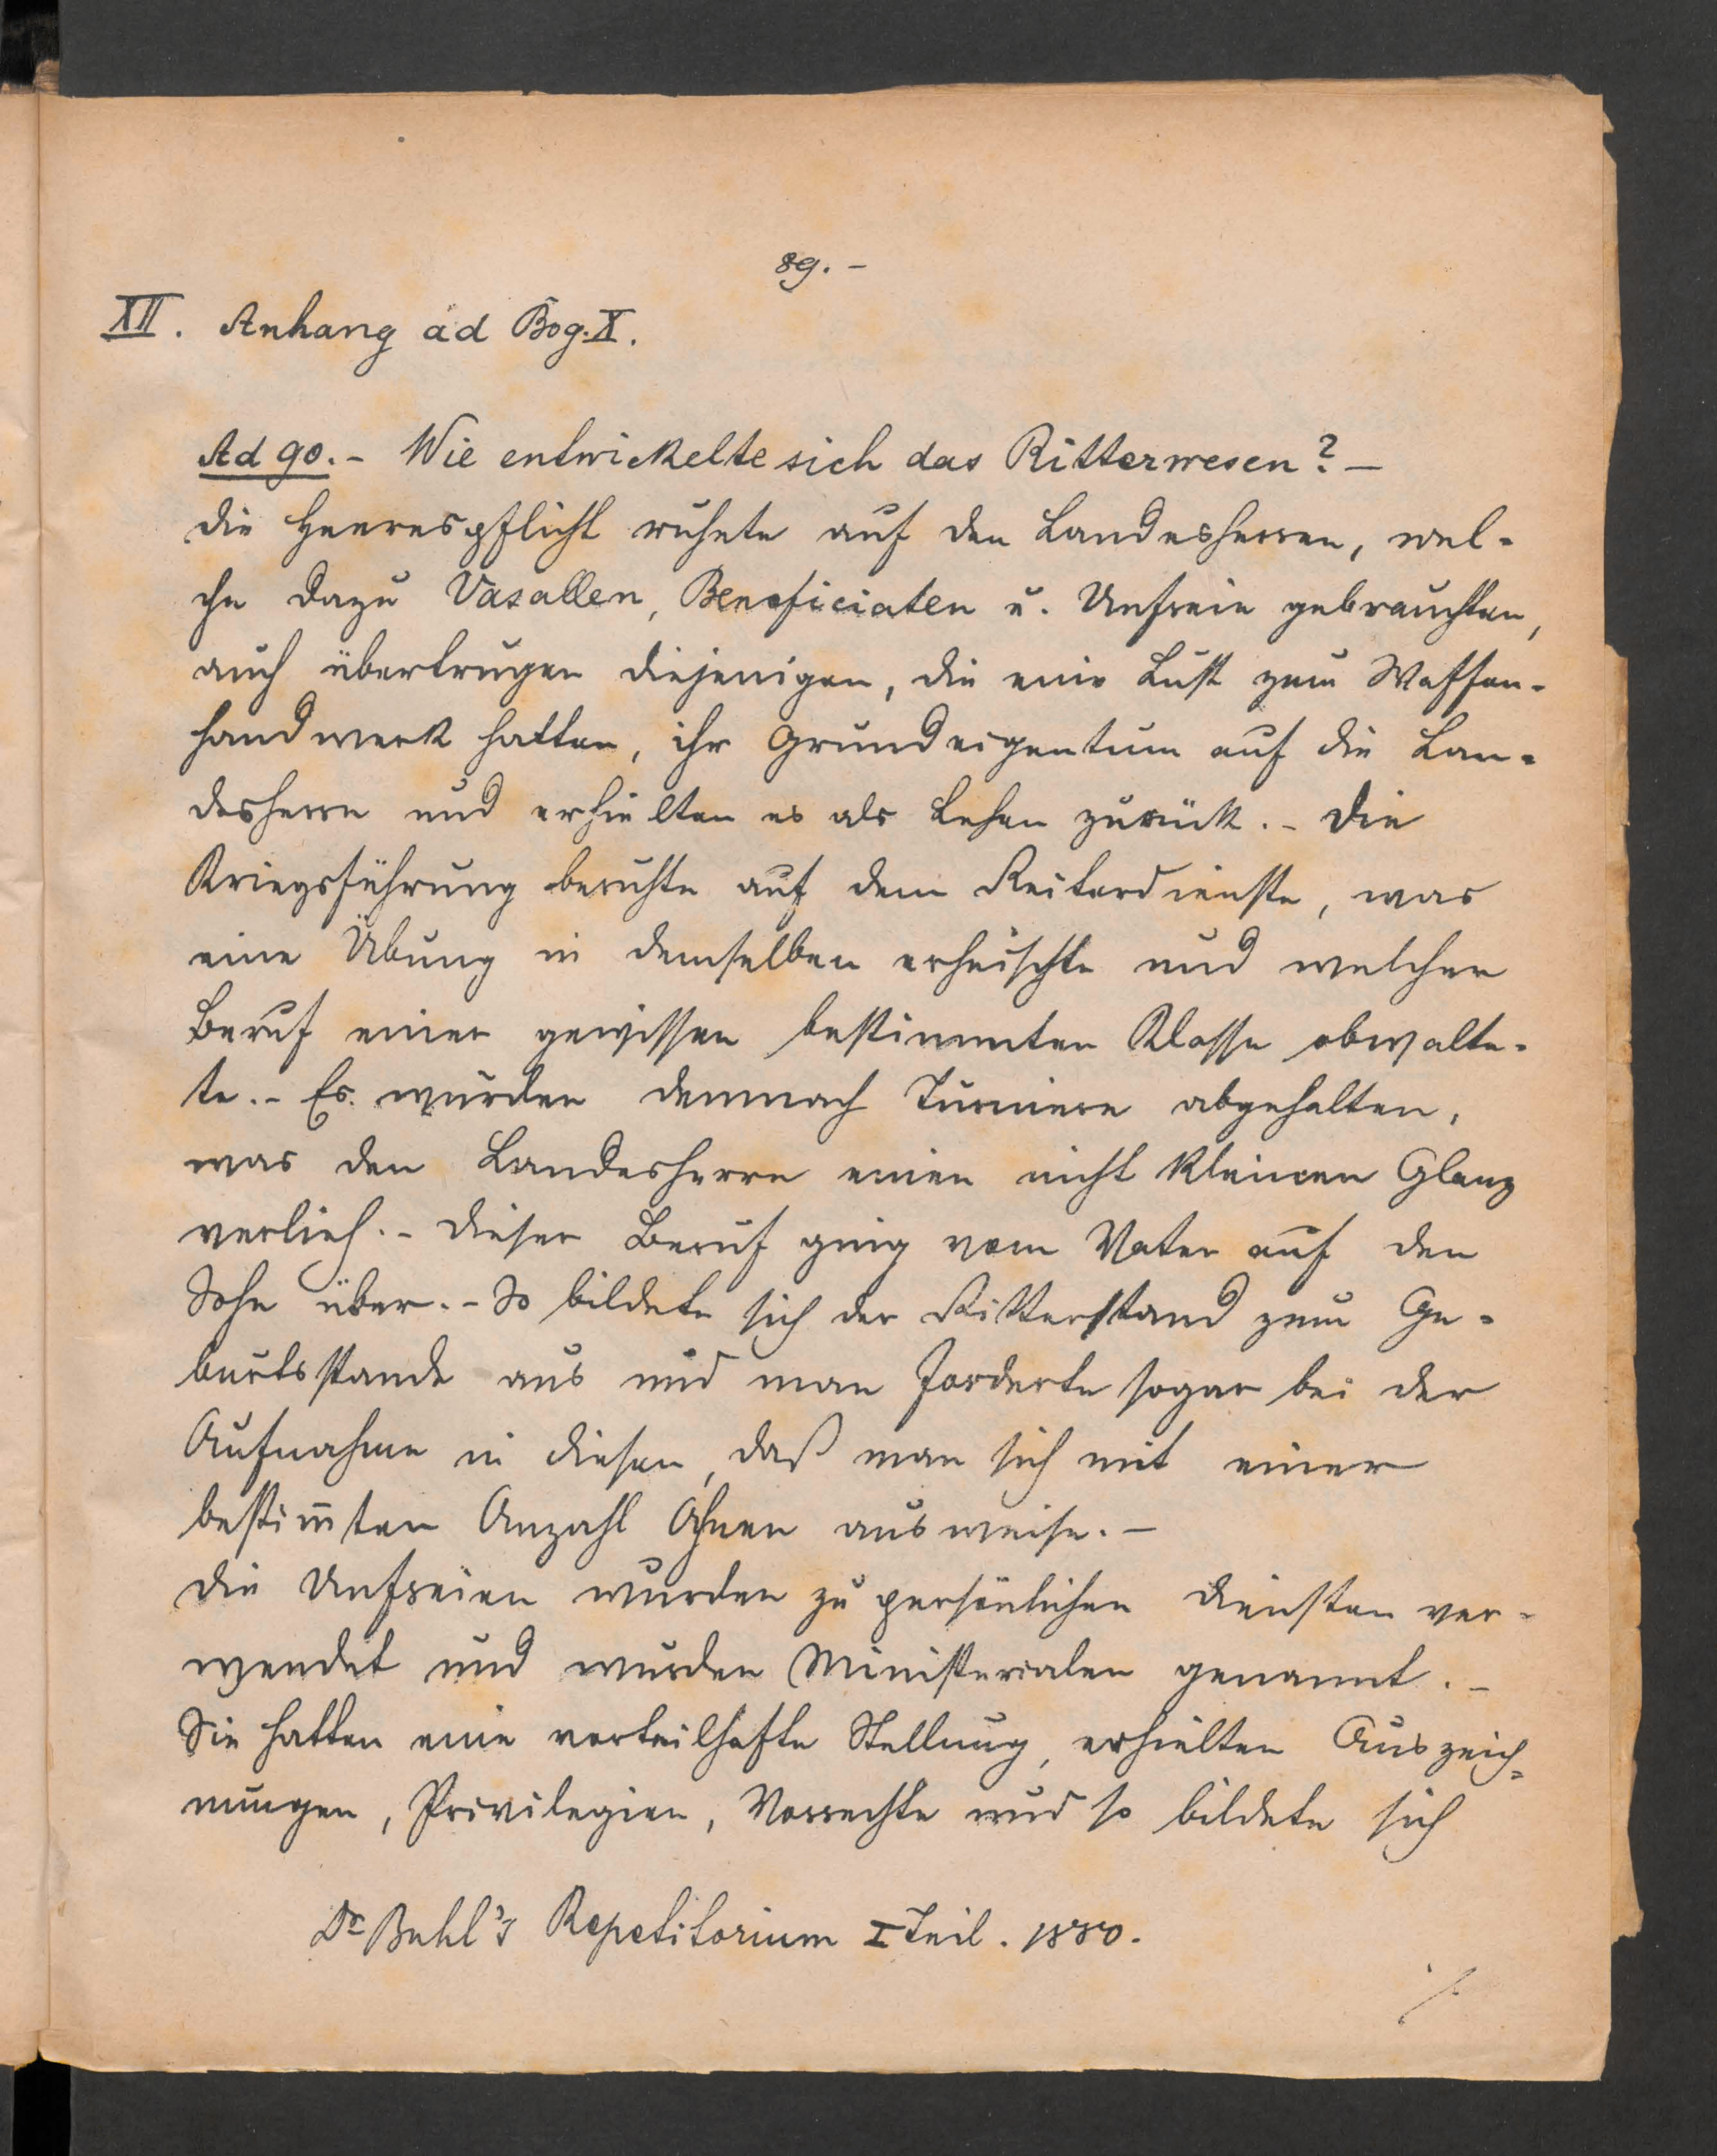 89. -
XII. Anhang ad Bog. X.
Ad 90. - Wie entwickelte sich das Ritterwesen? -
Die Heerespflicht ruhete auf den Landesherren, wel-
che dazu Vasallen, Beneficiaten u. Unfreie gebrauchten,
auch übertrugen diejenigen, die eine Lust zum Waffen-
handwerk hatten, ihr Grundeigentum auf die Lan-
desherrn und erhielten es als Lehen zurück. - Die
Kriegsführung beruhte auf dem Reiterdienste, was
eine Übung in demselben erheischte und welcher
Beruf einer gewissen bestimmten Klasse obwalte-
te. - Es wurden demnach Turniere abgehalten,
was den Landesherrn einen nicht kleinen Glanz
verlieh. - Dieser Beruf ging vom Vater auf den
Sohn über. - So bildete sich der Ritterstand zum Ge-
burtsstande aus und man forderte sogar bei der
Aufnahme in diesen, daß man sich mit einer
bestim̄ten Anzahl Ahnen ausweise. -
Die Unfreien wurden zu persönlichen Diensten ver-
wendet und wurden Ministerialen genannt. -
Sie hatten eine vorteilhafte Stellung, erhielten Auszeich-
nungen, Privilegien, Vorrechte und so bildete sich
Dr Buhl's Repetitorium I Teil. 1880.
./.